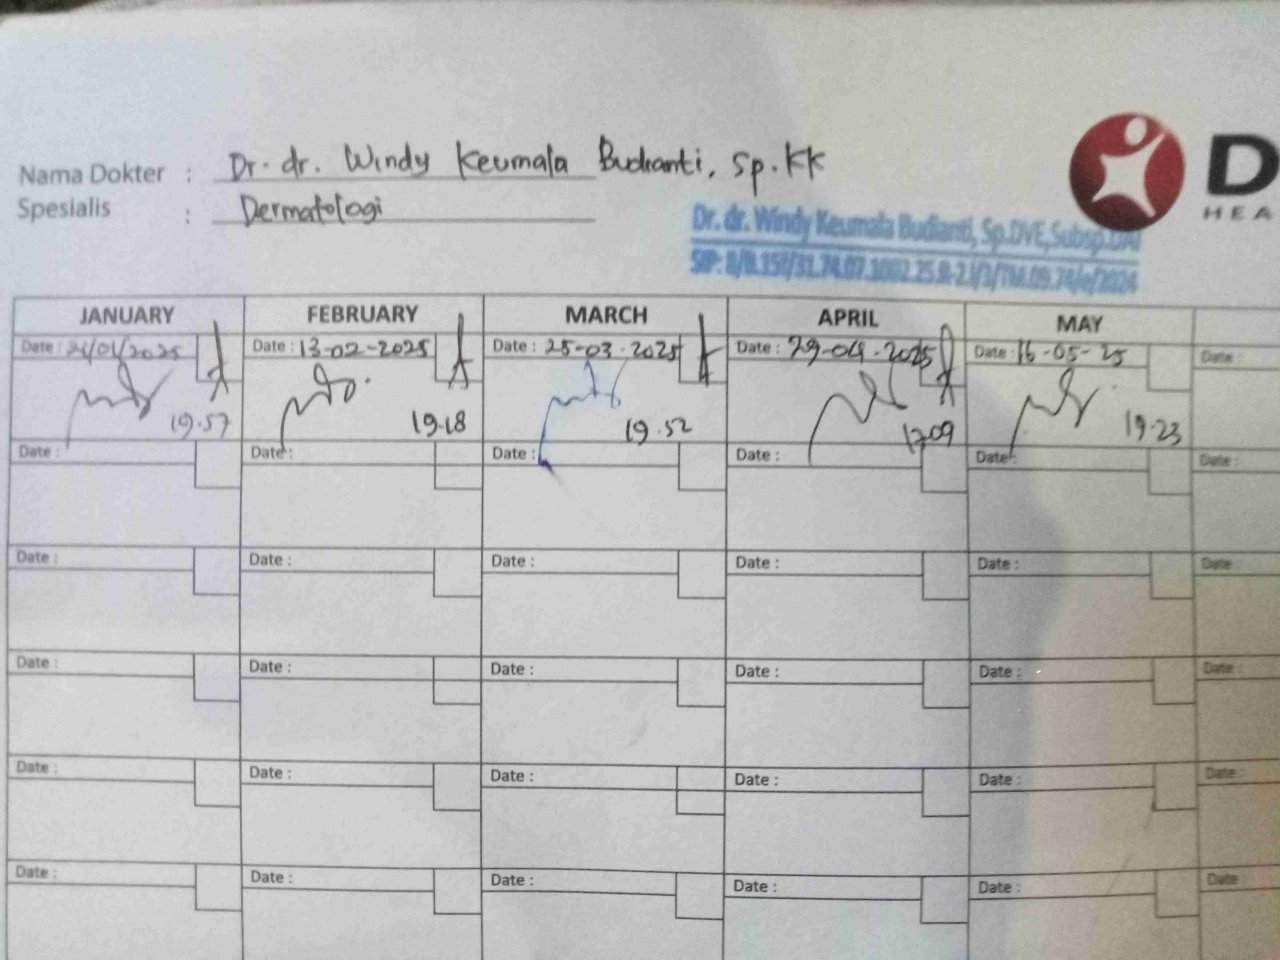 Nama Dokter : Dr. dr. Windy Keumala Budianti, Sp.KK
Spesialis : Dermatologi
D
HEA
Dr. dr. Windy Keumala Budianti, Sp.DVE,Subsp.DAI
SIP:
JANUARY FEBRUARY MARCH APRIL MAY
Date : 13-02-2025 Date : 25-03-2025 Date : 29-04-2025 Date : 16-05-25 Date :
19.57 19.18 19.52 17.09 19.23
Date : Date : Date : Date : Date : Date :
Date : Date : Date : Date : Date : Date :
Date : Date : Date : Date : Date : Date :
Date : Date : Date : Date : Date : Date :
Date : Date : Date : Date : Date : Date